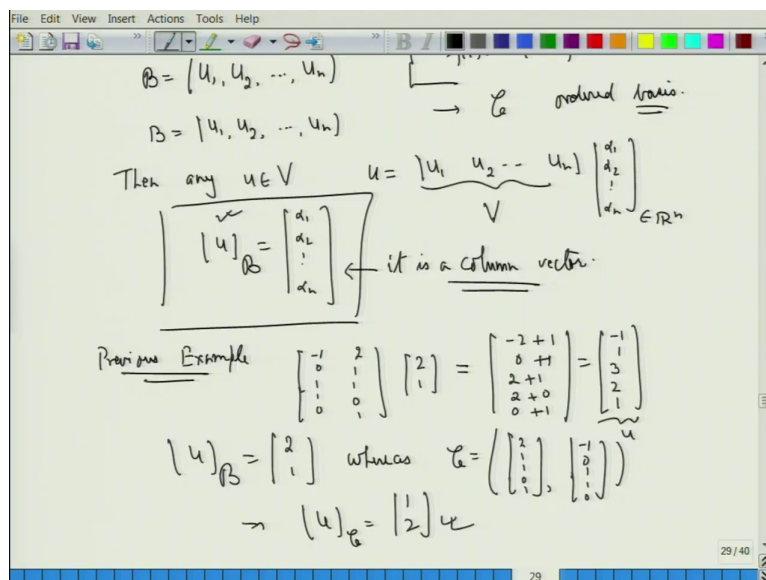 File Edit View Insert Actions Tools Help
B = (u₁, u₂, ..., uₙ)
→ C ordered basis.
B = [u₁, u₂, ..., uₙ)
Then any u ∈ V u = [u₁ u₂ -- uₙ] [α₁ α₂ ⋮ αₙ] ∈ ℝⁿ
V
[u]_B = [α₁ α₂ ⋮ αₙ] ← it is a column vector.
Previous Example [-1 2; 0 1; 1 1; 1 0; 0 1] [2; 1] = [-2+1; 0+1; 2+1; 2+0; 0+1] = [-1; 1; 3; 2; 1]
u
[u]_B = [2; 1] whereas C = ([2; 1; 1; 0; 1], [-1; 0; 1; 1; 0])
→ [u]_C = [1; 2]
29/40
29